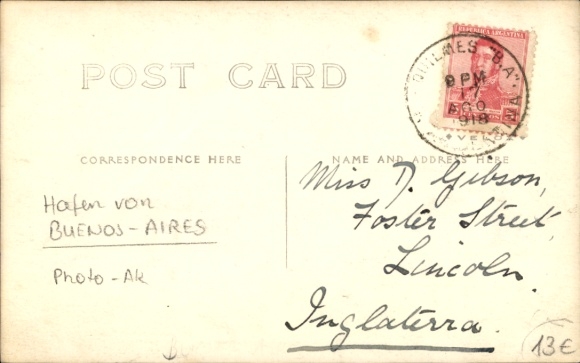 REPUBLICA ARGENTINA
QUILMES "B.A"
9 PM
17
AGO
918
POST CARD
CORRESPONDENCE HERE
NAME AND ADDRESS HERE
Miss D. Gibson,
Foster Street
Lincoln.
Inglaterra.
Hafen von
BUENOS-AIRES
Photo-Ak
13€